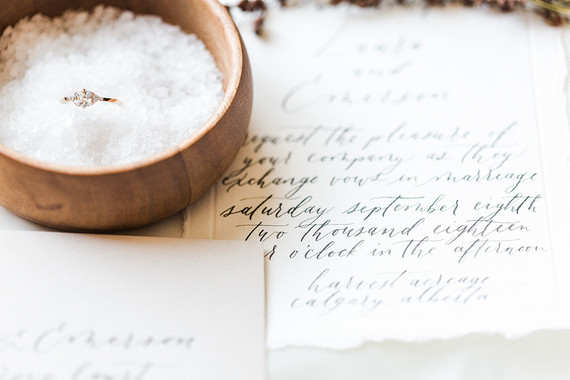 and
Emerson
request the pleasure of
your company as they
exchange vows in marriage
saturday september eighth
two thousand eighteen
r o'clock in the afternoon
harvest acreage
calgary alberta
Emerson
Court